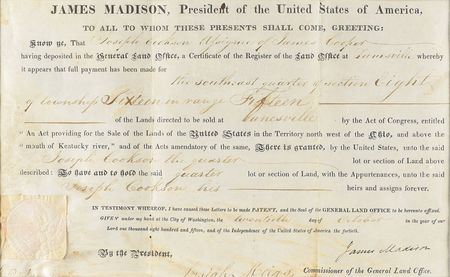 JAMES MADISON, President of the United States of America,
TO ALL TO WHOM THESE PRESENTS SHALL COME, GREETING:
Know ye, That Joseph Cookson Assignee of James Cooper
having deposited in the General Land Office, a Certificate of the Register of the Land Office at Zanesville whereby
it appears that full payment has been made for the southeast quarter of section Eight
of township Sixteen in range Fifteen
of the Lands directed to be sold at Zanesville by the Act of Congress, entitled
"An Act providing for the Sale of the Lands of the United States in the Territory north west of the Ohio, and above the
"mouth of Kentucky river," and of the Acts amendatory of the same, There is granted, by the United States, unto the said
Joseph Cookson the quarter lot or section of Land above
described: To have and to hold the said quarter lot or section of Land, with the Appurtenances, unto the said
Joseph Cookson his heirs and assigns forever.
IN TESTIMONY WHEREOF, I have caused these Letters to be made PATENT, and the Seal of the GENERAL LAND OFFICE to be hereunto affixed.
GIVEN under my hand at the City of Washington, the twentieth day of October in the year of our
Lord one thousand eight hundred and fifteen, and of the Independence of the United States of America the fortieth.
James Madison
By the President,
Commissioner of the General Land Office.